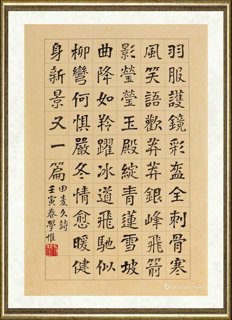 羽服護鏡彩盔全刺骨寒
風笑語歡莽莽銀峰飛箭
影瑩瑩玉殿綻青蓮雪坡
曲降如羚躍冰道飛馳似
柳彎何懼嚴冬情愈暖健
身新景又一篇
田麦久詩
壬寅春學惟